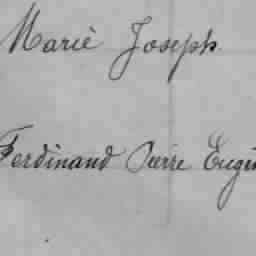 Marie Joseph
Ferdinand Pierre